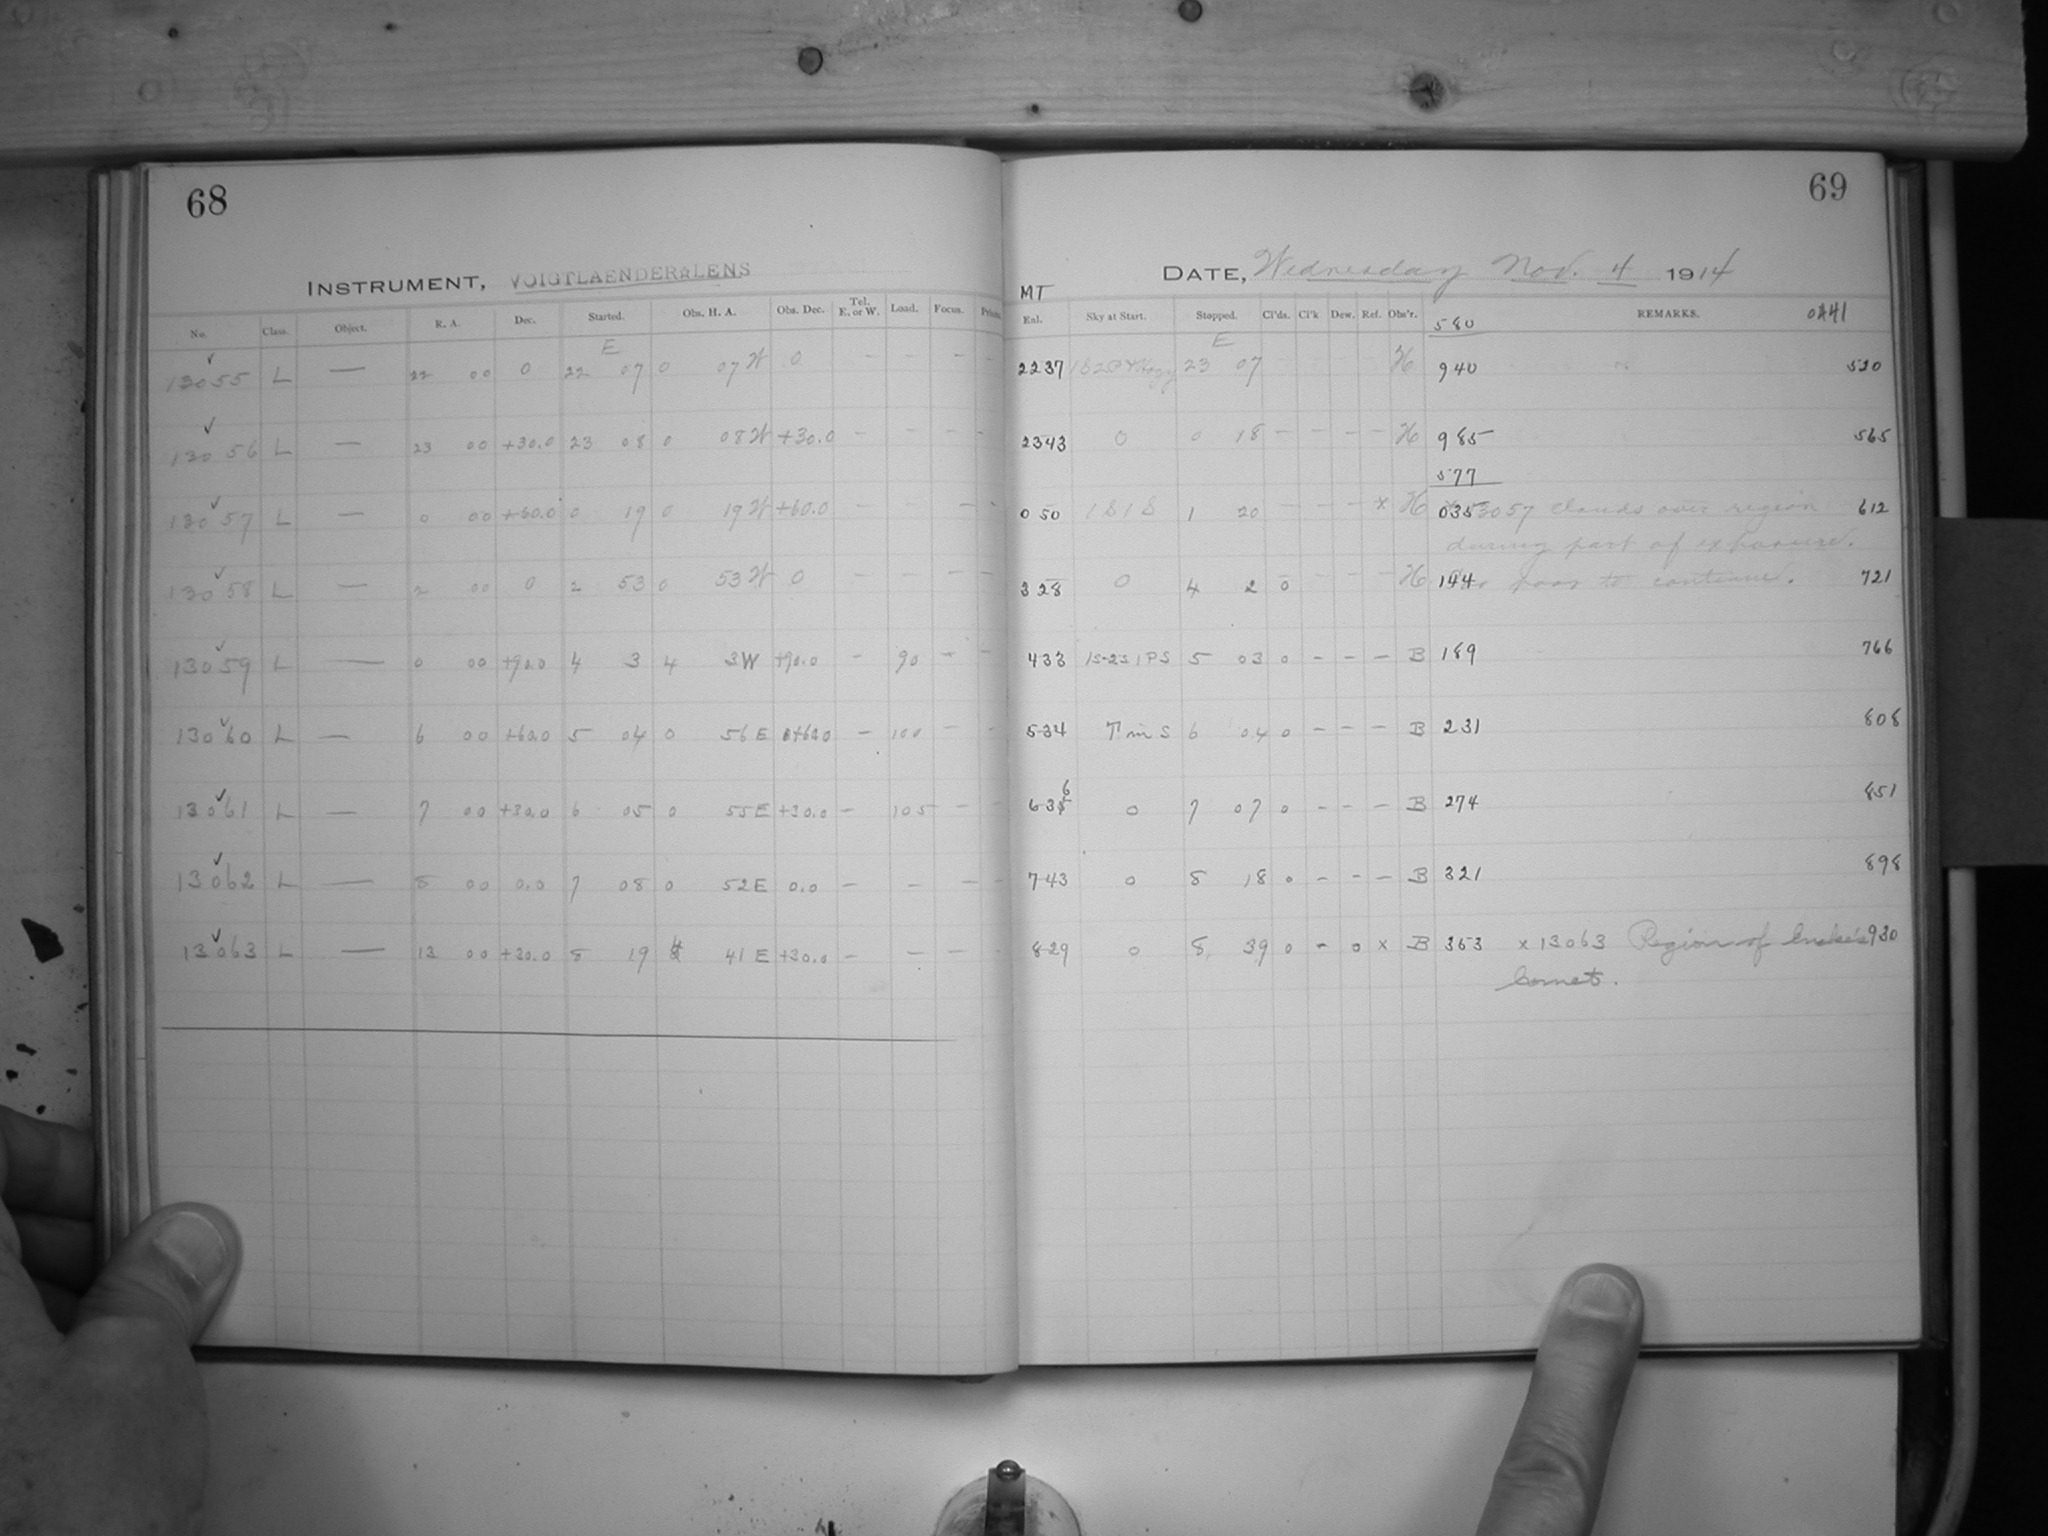 68
INSTRUMENT, VOIGTLAENDER LENS
No. Class. Object. R. A. Dec. Started. Obs. H. A. Obs. Dec. Tel. E. or W. Load. Focus.
E
13055 L — 22 00 0 22 07 0 07 W 0 — — —
13056 L — 23 00 +30.0 23 08 0 08 W +30.0 — — —
13057 L — 0 00 +60.0 0 19 0 19 W +60.0 — — —
13058 L — 2 00 0 2 53 0 53 W 0 — — —
13059 L — 0 00 +90.0 4 3 4 3 W +90.0 — 90 —
13060 L — 6 00 +60.0 5 04 0 56 E +60.0 — 100 —
13061 L — 7 00 +30.0 6 05 0 55 E +30.0 — 105 —
13062 L — 8 00 0.0 7 08 0 52 E 0.0 — — —
13063 L — 13 00 +30.0 8 19 4 41 E +30.0 — — —
69
DATE, Wednesday Nov. 4 1914
MT
Enl. Sky at Start. Stopped. Cl'ds. Cl'k Dew. Ref. Obs'r. 580 REMARKS. 0441
E
2237 23 07 H 940 520
2343 0 0 18 — — — — H 985 565
577
050 1S1S 1 20 — — — × H 035 13057 Clouds over region 612
during part of exposure.
328 0 4 2 0 — — — H 144 poor to continue. 721
433 1S-2S1PS 5 03 0 — — — B 189 766
534 T in S 6 04 0 — — — B 231 808
636 0 7 07 0 — — — B 274 851
743 0 8 18 0 — — — B 321 898
829 0 8 39 0 — 0 × B 353 × 13063 Region of Encke's 930
Comet.